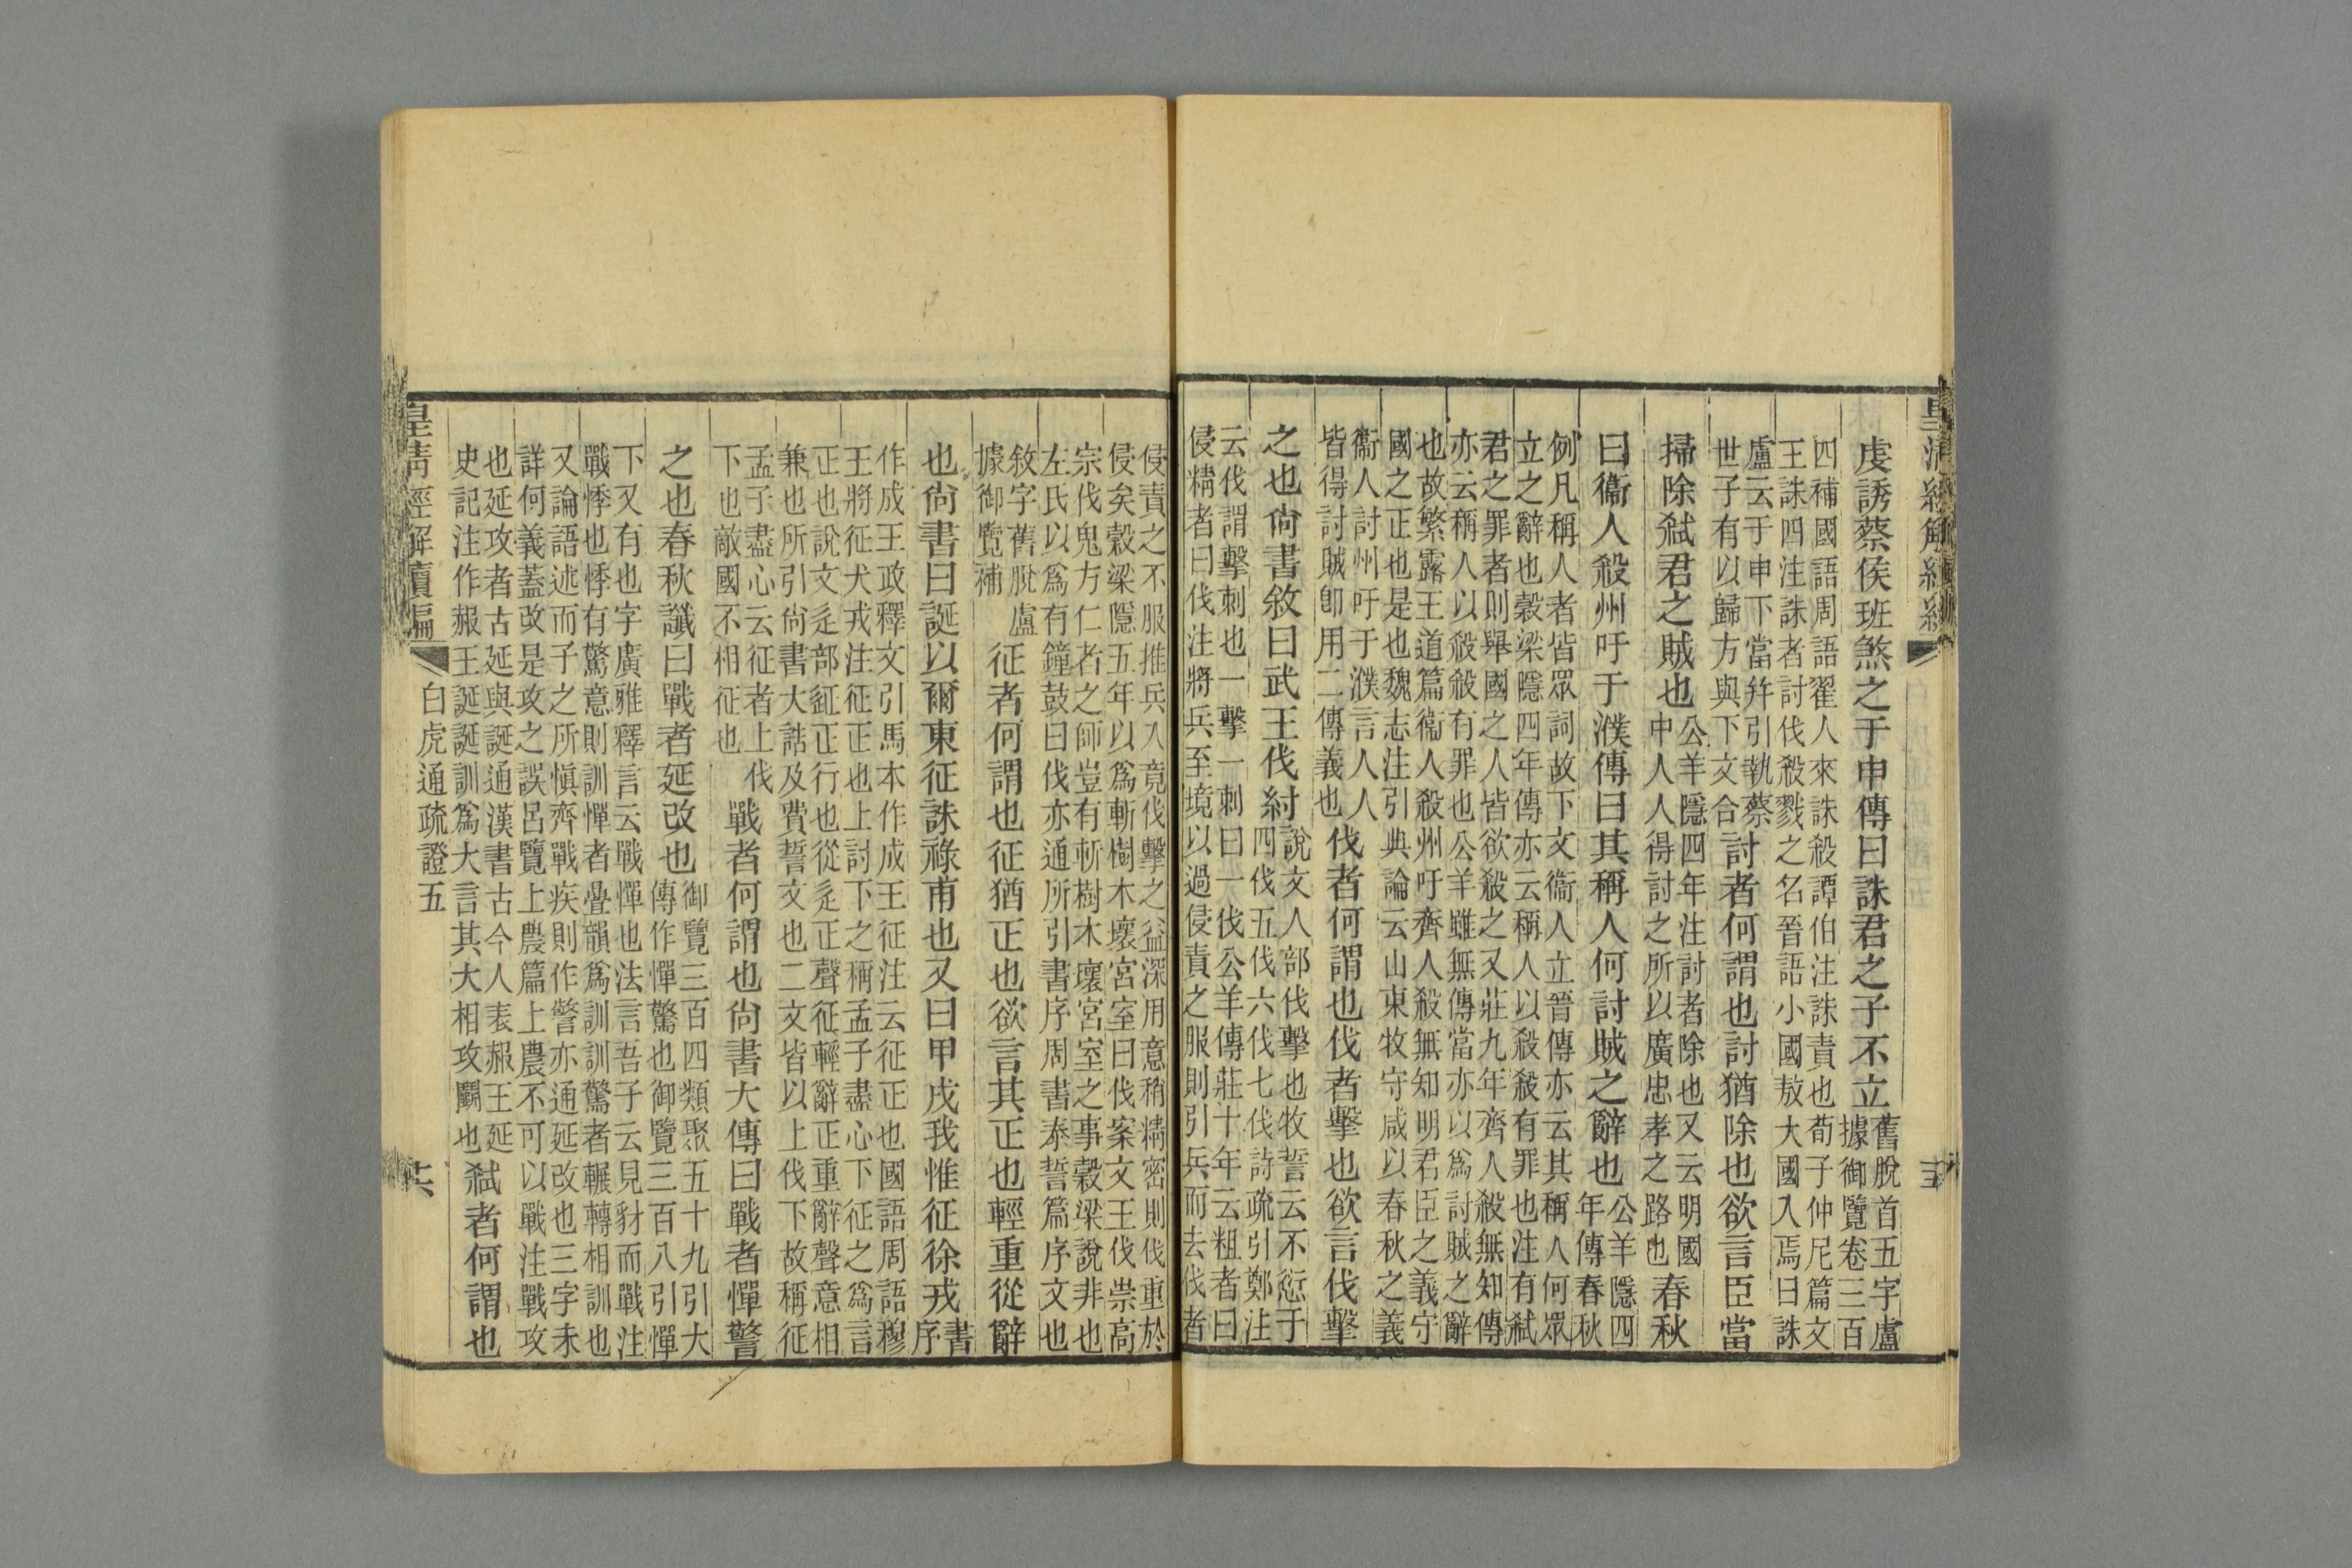 虔誘蔡侯班煞之于申傳曰誅君之子不立
舊脫首五字盧
據御覽卷三百
四補國語周語翟人來誅殺譚伯注誅責也荀子仲尼篇文
王誅四注誅者討伐殺戮之名晉語小國敖大國入焉曰誅
盧云于申下當幷引執蔡
世子有以歸方與下文合
討者何謂也討猶除也欲言臣當
掃除弒君之賊也
公羊隱四年注討者除也又云明國
中人人得討之所以廣忠孝之路也
春秋
曰衞人殺州吁于濮傳曰其稱人何討賊之辭也
公羊隱四
年傳春秋
例凡稱人者皆眾詞故下文衞人立晉傳亦云其稱人何眾
立之辭也穀梁隱四年傳亦云稱人以殺殺有罪也注有弒
君之罪者則舉國之人皆欲殺之又莊九年齊人殺無知傳
亦云稱人以殺殺有罪也公羊雖無傳當亦以爲討賊之辭
也故繁露王道篇衞人殺州吁齊人殺無知明君臣之義守
國之正也是也魏志注引典論云山東牧守咸以春秋之義
衞人討州吁于濮言人人
皆得討賊卽用二傳義也
伐者何謂也伐者擊也欲言伐擊
之也尙書敘曰武王伐紂
說文人部伐擊也牧誓云不愆于
四伐五伐六伐七伐詩疏引鄭注
云伐謂擊刺也一擊一刺曰一伐公羊傳莊十年云粗者曰
侵精者曰伐注將兵至境以過侵責之服則引兵而去伐者
侵責之不服推兵入竟伐擊之益深用意稍精密則伐重於
侵矣穀梁隱五年以爲斬樹木壞宮室曰伐案文王伐崇高
宗伐鬼方仁者之師豈有斬樹木壞宮室之事穀梁說非也
左氏以爲有鐘鼓曰伐亦通所引書序周書泰誓篇序文也
敘字舊脫盧
據御覽補
征者何謂也征猶正也欲言其正也輕重從辭
也尙書曰誕以爾東征誅祿甫也又曰甲戌我惟征徐戎
書
序
作成王政釋文引馬本作成王征注云征正也國語周語穆
王將征犬戎注征正也上討下之稱孟子盡心下征之爲言
正也說文辵部延正行也從辵正聲征輕辭正重辭聲意相
兼也所引尙書大誥及費誓文也二文皆以上伐下故稱征
孟子盡心云征者上伐
下也敵國不相征也
戰者何謂也尙書大傳曰戰者憚警
之也春秋讖曰戰者延改也
御覽三百四類聚五十九引大
傳作憚驚也御覽三百八引憚
下又有也字廣雅釋言云戰憚也法言吾子云見豺而戰注
戰悸也悸有驚意則訓憚者疊韻爲訓訓驚者輾轉相訓也
又論語述而子之所愼齊戰疾則作警亦通延改也三字未
詳何義蓋改是攻之誤呂覽上農篇上農不可以戰注戰攻
也延攻者古延與誕通漢書古今人表赧王延
史記注作赧王誕誕訓爲大言其大相攻鬭也
弒者何謂也
皇清經解續編
白虎通疏證五